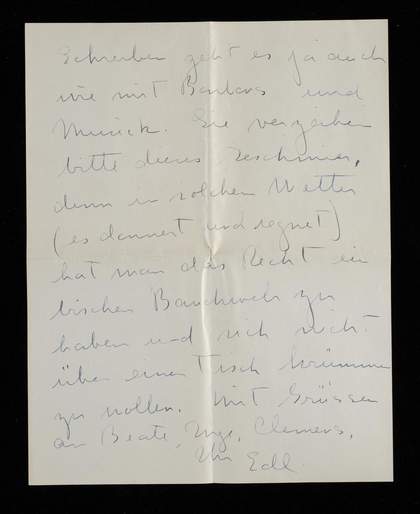 Schreiben geht es ja auch
wie mit Barbara und
Musick. Sie verzeihen
bitte dieses
denn in solchem Wetter
(es donnert und regnet)
hat man das Recht ein
bischen Bauchweh zu
haben und sich nicht
über einen Tisch krümmen
zu wollen. Mit Grüssen
an Beate, Inge, Clemens,
Ihr Edl